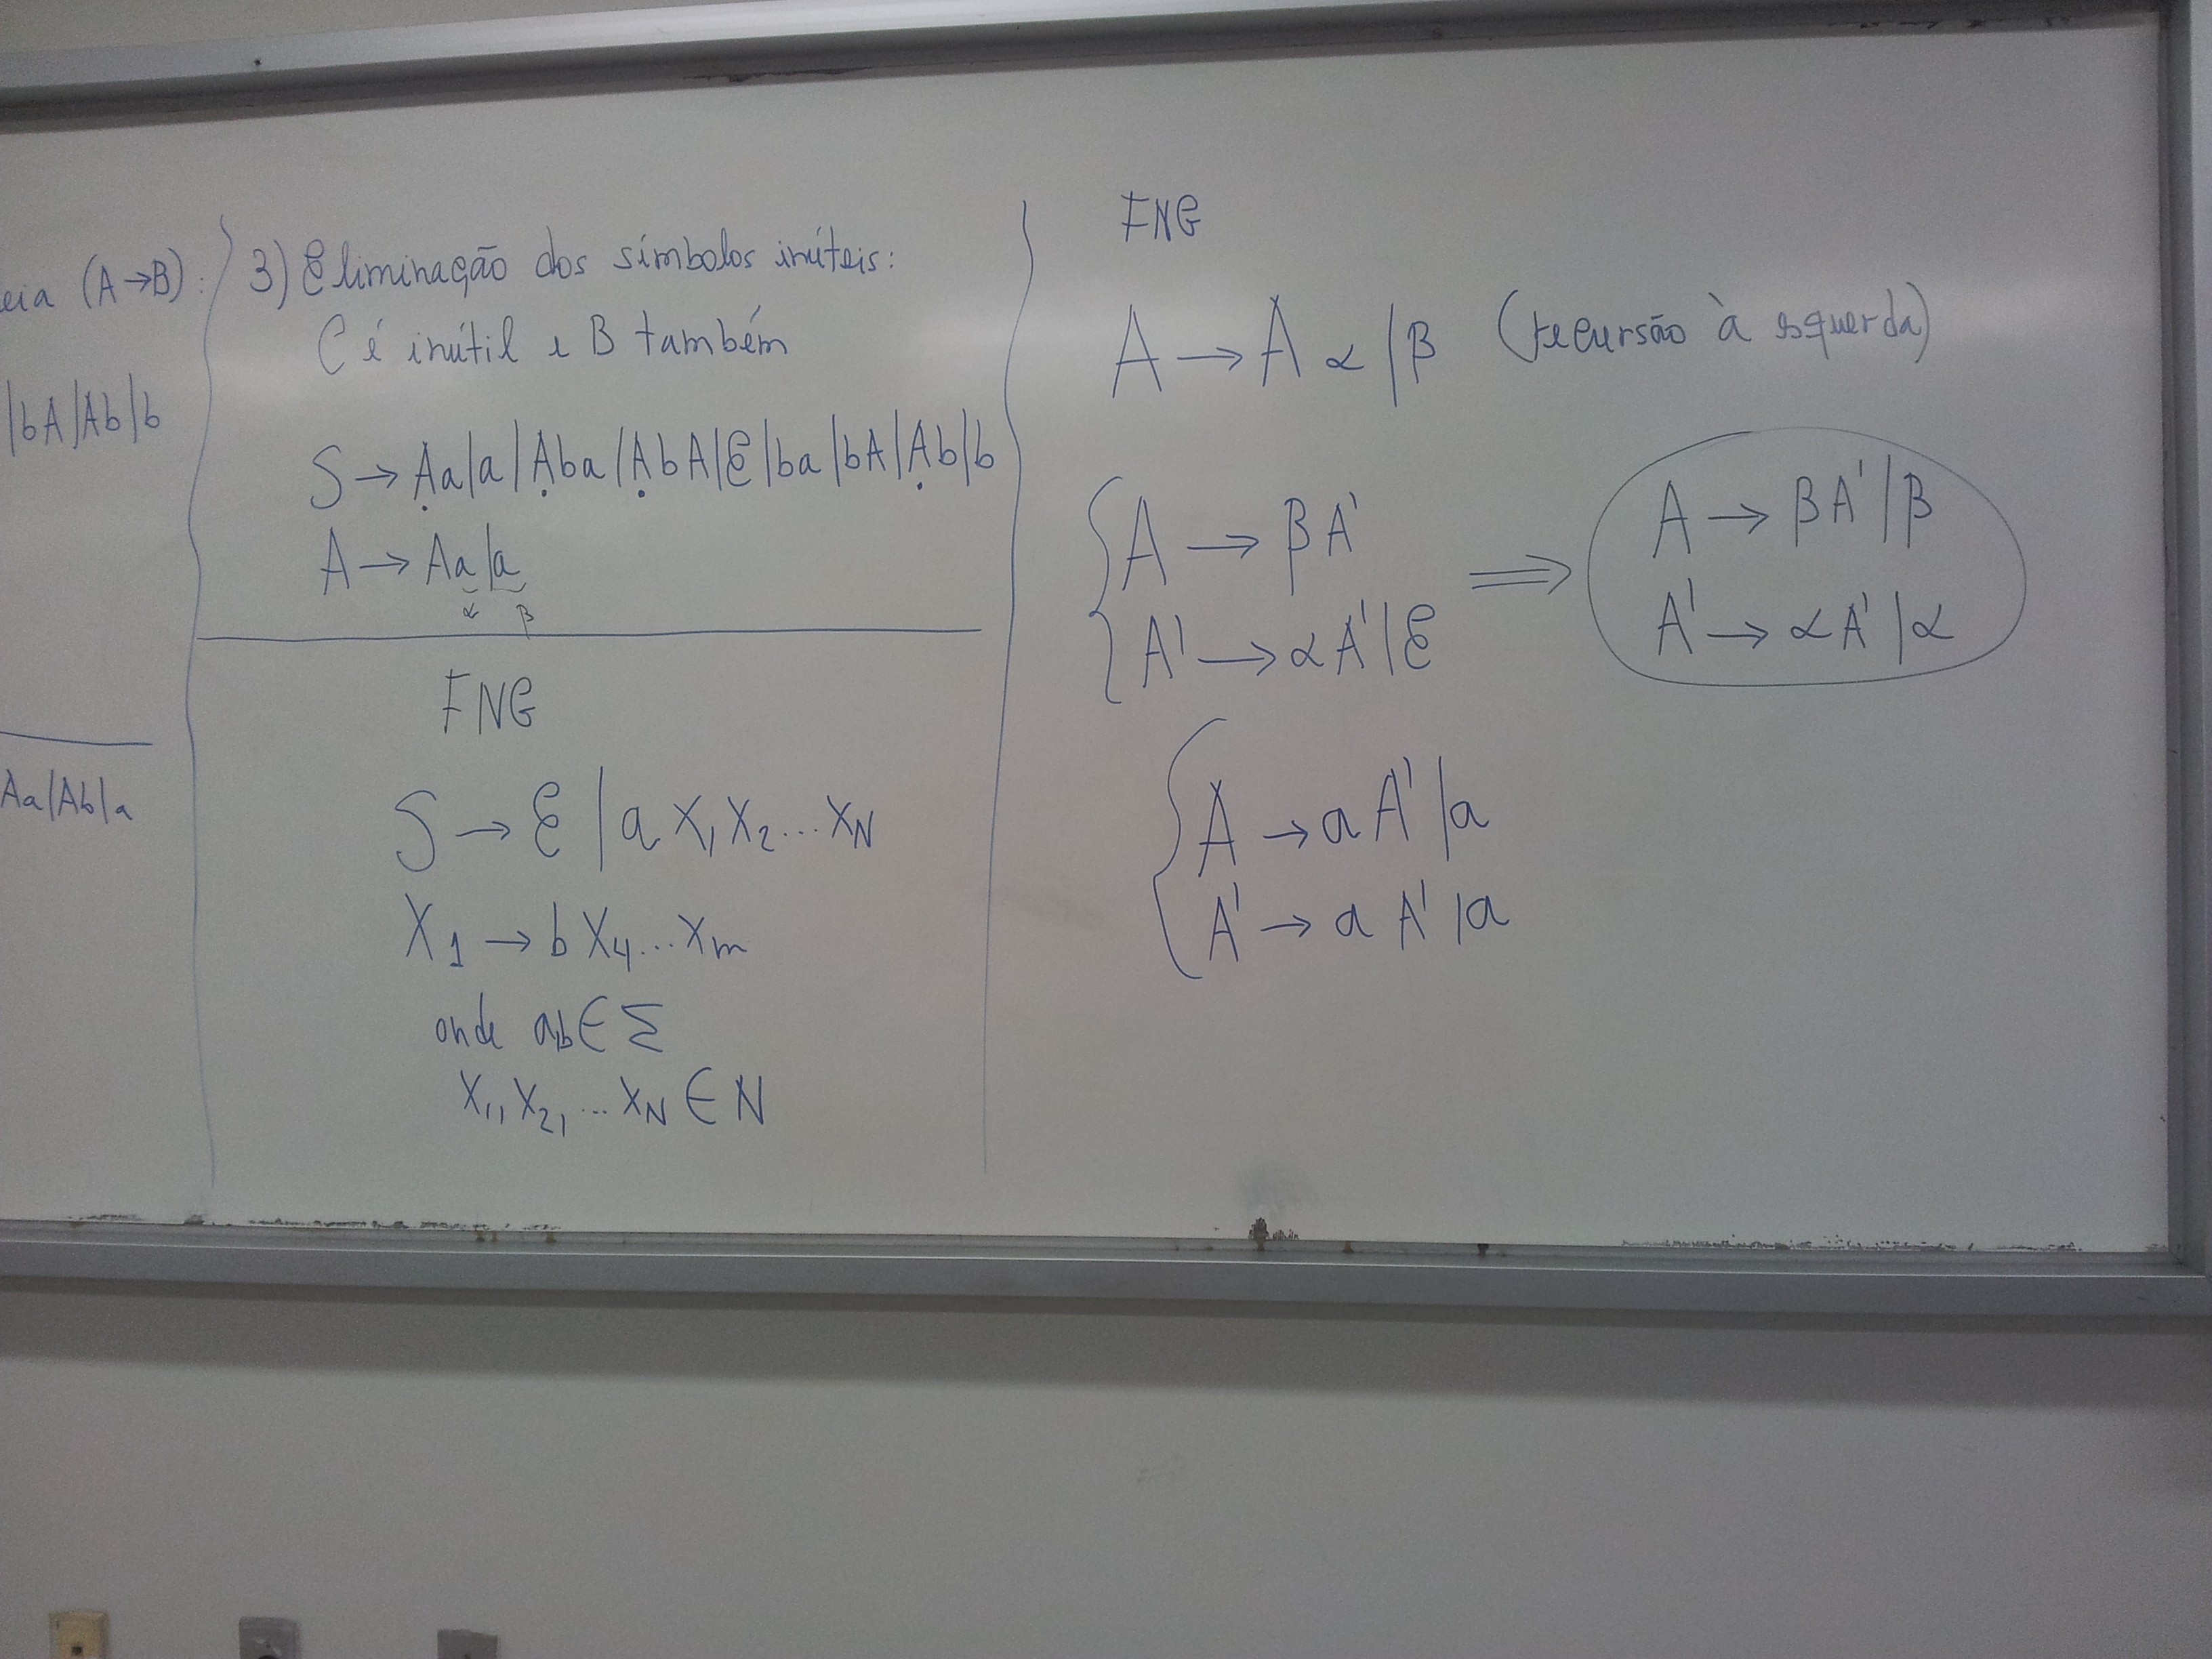 eia (A→B):
|bA|Ab|b
Aa|Ab|a
3) Eliminação dos símbolos inúteis:
C é inútil e B também
S → Aa|a|Aba|AbA|ε|ba|bA|Ab|b
A → Aa|a
α β
FNG
S → ε | a X₁X₂...X_N
X₁ → b X₄...X_m
onde a,b ∈ Σ
X₁, X₂, ... X_N ∈ N
FNG
A → A α | β (recursão à esquerda)
A → β A'
A' → α A' | ε
⟹
A → β A' | β
A' → α A' | α
A → a A' | a
A' → a A' | a